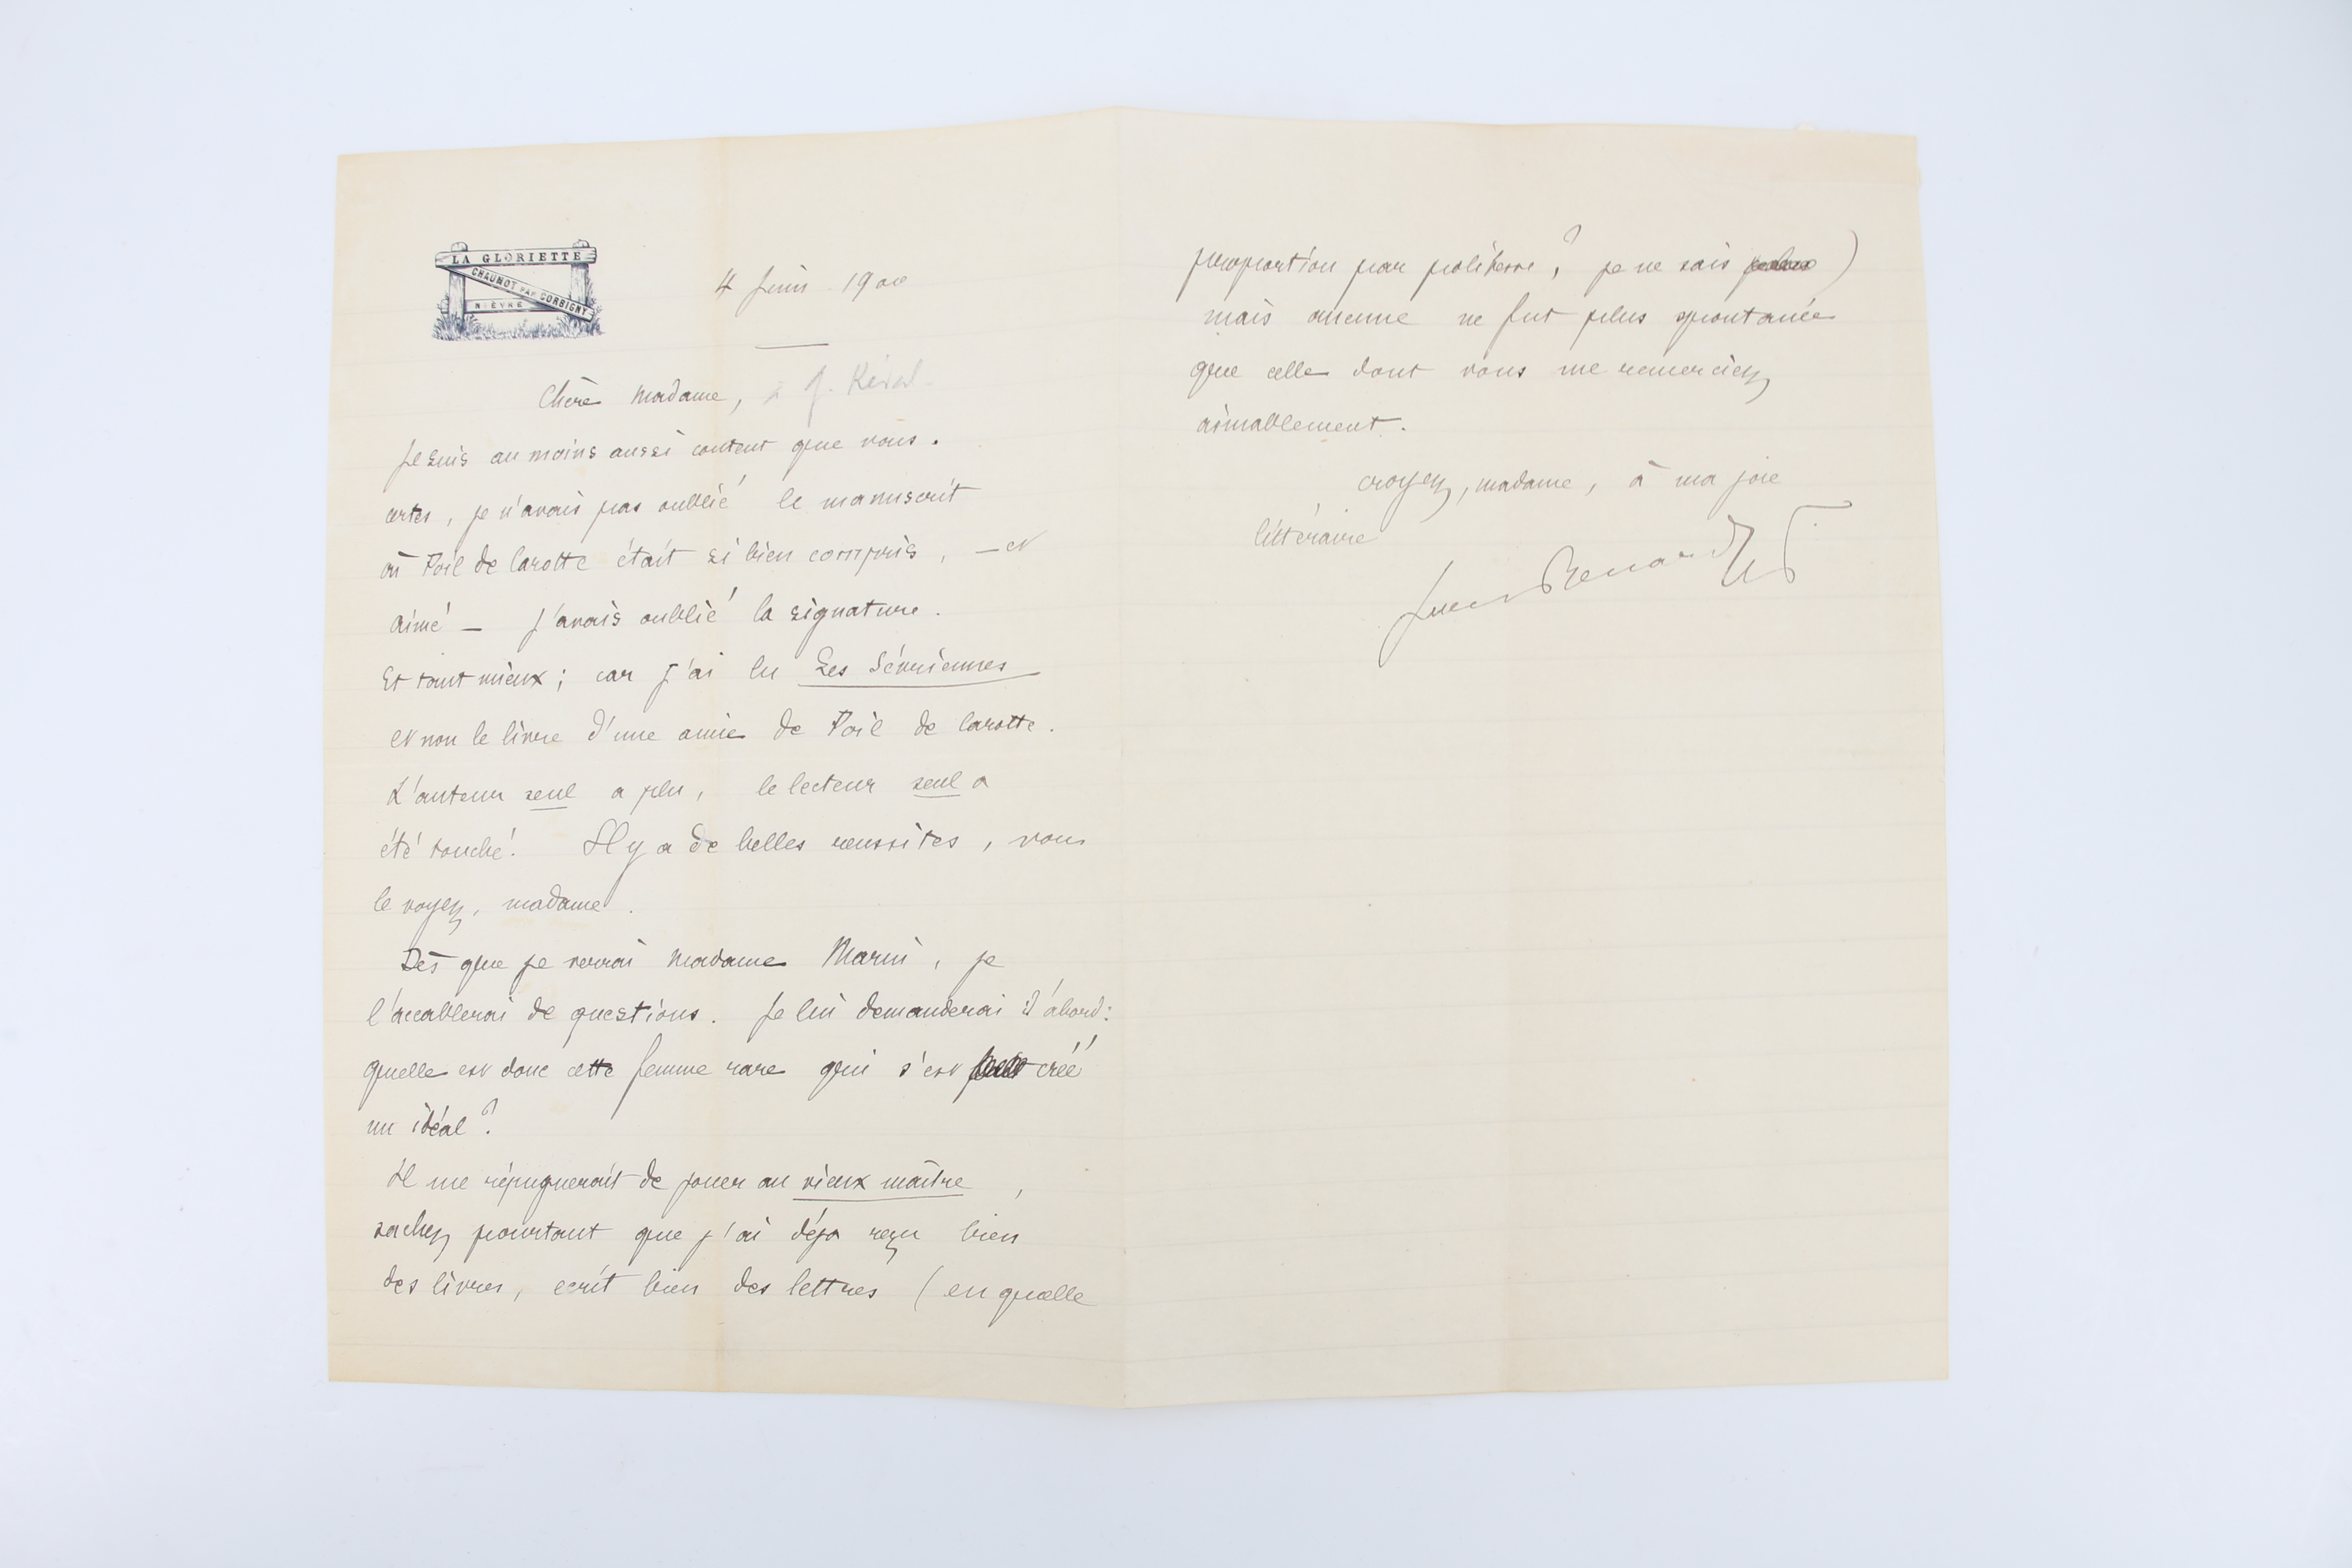 LA GLORIETTE
CHAUMOT PAR CORBIGNY
NIÈVRE
4 Juin 1900
Chère Madame, à G. Réval
Je suis au moins aussi content que vous.
certes, je n'avais pas oublié le manuscrit
où Poil de Carotte était si bien compris, — et
aimé — j'avais oublié la signature.
Et tant mieux ; car j'ai lu Les Sévriennes
et non le livre d'une amie de Poil de Carotte.
L'auteur seul a plu, le lecteur seul a
été touché ! Il y a de belles reussites, vous
le voyez, madame.
Dès que je verrai Madame Marni, je
l'accablerai de questions. Je lui demanderai d'abord :
quelle est donc cette femme rare qui s'est créé
un idéal ?
Il me répugnerait de jouer au vieux maître,
sachez pourtant que j'ai déja reçu bien
des livres, ecrit bien des lettres (en quelle
proportion par politesse ? je ne sais)
mais aucune ne fut plus spontanée
que celle dont vous me remerciez
aimablement.
croyez, madame, à ma joie
littéraire
Jules Renard